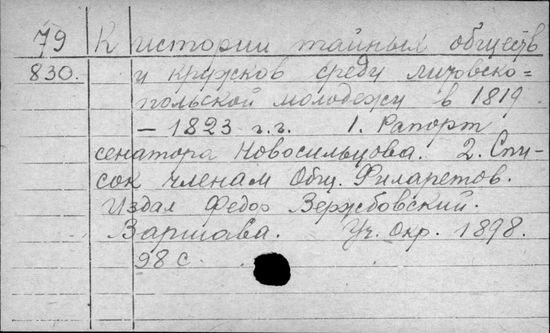 79 К истории тайных обществ
830. и кружков среди литовско-
польской молодежи в 1819
- 1823 г.г. 1. Рапорт
сенатора Новосильцова. 2. Спи-
сок членам Общ. Филаретов.
Издал Федор Вержбовский.
Варшава. Уч. Окр. 1898.
98 с.